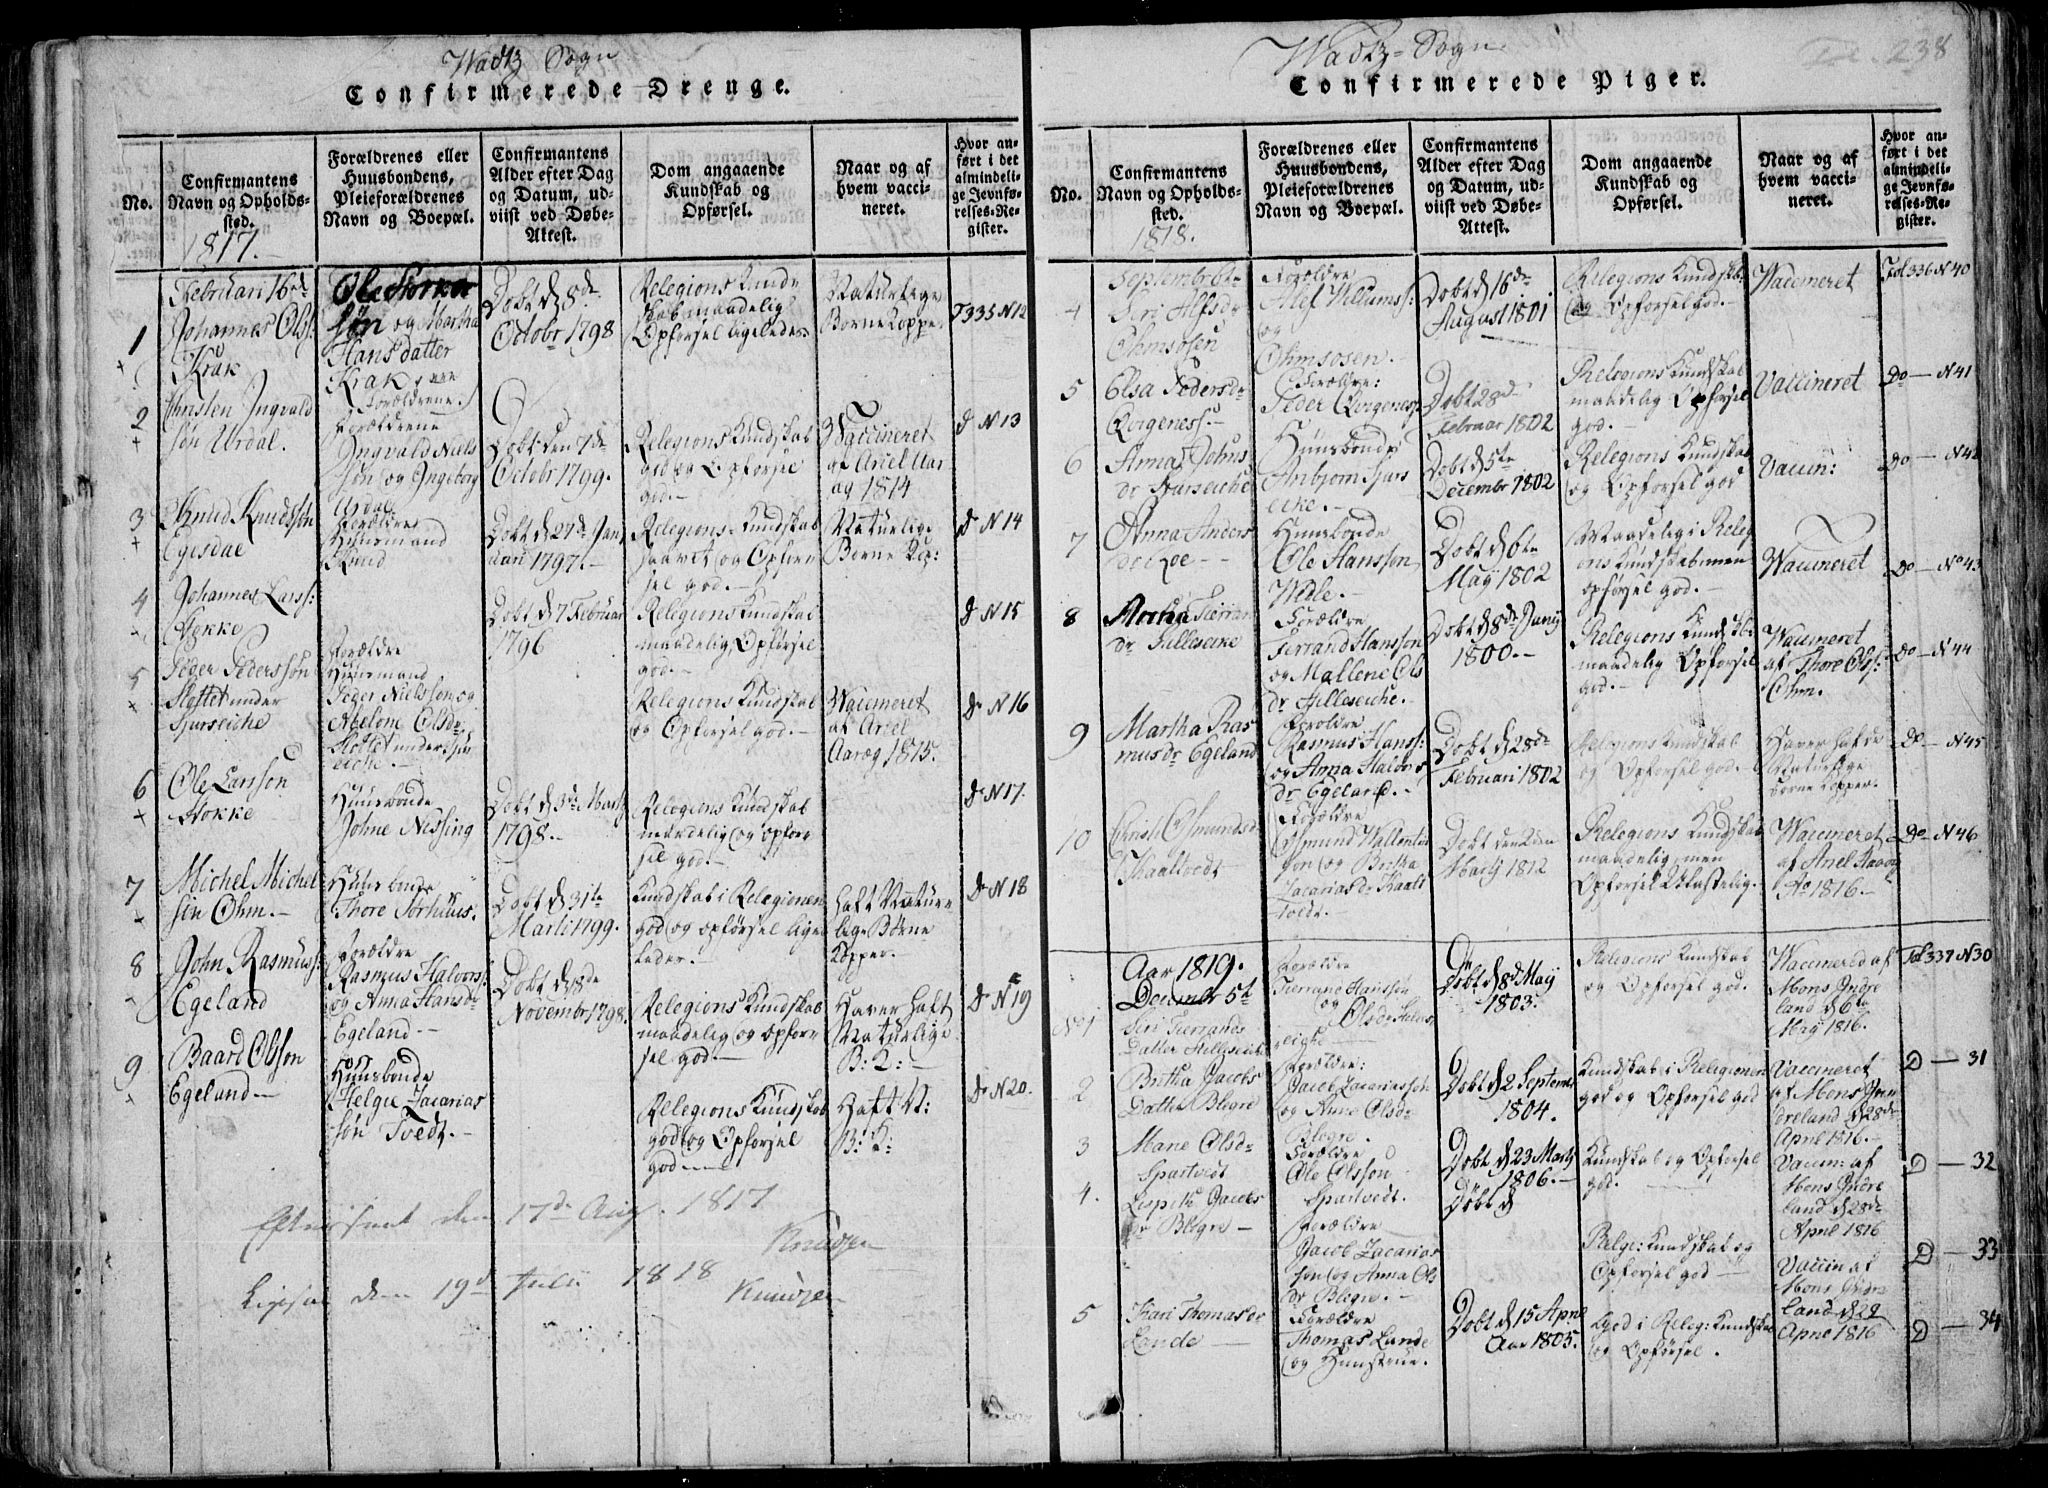 Wadtz Sogn
Confirmerede Drenge.
No.
Confirmantens
Navn og Opholds-
sted.
1817.
Forældrenes eller
Huusbondens,
Pleieforældrenes
Navn og Boepæl.
Confirmantens
Alder efter Dag
og Datum, ud-
viist ved Døbe-
Attest.
Dom angaaende
Kundskab og
Opførsel.
Naar og af
hvem vacci-
neret.
Hvor an-
ført i det
almindeli-
ge Jevnfø-
relses-Re-
gister.
Februari 16de
1
Johannes Olss:
Krak
Ole
søn og Martha
Hansdatter
Krak
Forældrene
Dobt d 8de
Octobr 1798
Relegions Kund
skab maadelig
Opforsel ligeledes
Naturlige
Borne Kopper
F 335 N 12
2
Christen Ingvald
søn Urdal.
Forældrene
Ingvald Niels
søn og Ingeborg
Urdal
Dobt den 7de
Octobr 1799.
Relegions Kundskab
god og Opforsel
god.
Waccineret
af Ariel Aar
og 1814
D N 13
3
Knud Knudsson
Egesdal
Forældre
Huusmand
Knud
Dobt d 27de Jan
uari 1797.
Relegions Kundskab
og Opfør
sel god.
Naturlige
Borne Kop:
D N 14
4
Johannes Larss:
Stokke
Dobt d 7 Februar
1796
Relegions Kundskab
maadelig, Opførsel
god.
D N 15
5
Peder Pedersson
Slottet under
Sjurseiche
Forældre
Huusmand
Peder Nielsson og
Abelone Olsdr
Slottet under Sjur
eiche.
Relegions Kundskab
og Opforsel god.
Waccineret
af Ariel
Aarøg 1815.
D N 16
6
Ole Larsson
Stokke
Huusbonde
Johne Nessing
Dobt d 3de Martz
1798.
Relegions Kundskab
maadelig og opfor
sel god.
D N 17.
7
Michel Michel
søn Ohm.
Huusbonde
Thore Storhuus.
Dobt d 31te
Marti 1799.
Kundskab i Relegionen
god og opførsel lige
ledes.
haft Natur
lige Børne
Kopper.
D N 18
8
John Rasmuss:
Egeland
Forældre
Rasmus Halvors:
og Anna Hansdr
Egeland
Dobt d 8de
Novembr 1798.
Relegions Kundskab
maadelig og opfor
sel god.
Haver haft
Naturlige
B: K:
D N 19
9
Baard Olsson
Egeland
Huusbonde
Helge Zacarias
søn Tvedt.
Relegions Kundskab
god og Opforsel
god
Haft N:
B: K:
D N 20.
den 17de Aug. 1817
Knudzen
den 19d Julii 1818
Knudzen
Wadtz Sogn
238
Confirmerede Piger.
No.
Confirmantens
Navn og Opholds-
sted.
1818.
Forældrenes eller
Huusbondens,
Pleieforældrenes
Navn og Boepæl.
Confirmantens
Alder efter Dag
og Datum, ud-
viist ved Døbe-
Attest.
Dom angaaende
Kundskab og
Opførsel.
Naar og af
hvem vacci-
neret.
Hvor an-
ført i det
almindeli-
ge Jevnfø-
relses-Re-
gister.
4
Septembr 6te
Siri Alfsdr
Ohmsosen
Forældre
Alef Willumss:
og
Ohmsosen.
Dobt d 16de
August 1801
Relegions Kundskab
og Opforsel god.
Waccineret
Fol 336 N 40
5
Elsa Pedersdr
Qvigeness.
Forældre:
Peder Qvigeness
Dobt 28d
Februar 1802
Relegions Kundskab
maadelig Opforsel
god.
Vaccineret
Do N 41
6
Anna Johns
dr Sjurseiche
Huusbonde
Anbjørn Sjurs
eike.
Dobt d 5te
Decembr 1802
Relegions Kundskab
og Opforsel god
Vaccin:
Do N 42
7
Anna Anders
dr Loe
Huusbonde
Ole Hansson
Widle.
Dobt d 6te
Maij 1802
Maadelig i Releg
ons Kundskab men
opførsel god.
Waccineret
Do No 43
8
Martha Fierran
dr Hilleseike
Forældre
Fierrand Hansson
og Mallene Ols
dr Hilleseiche.
Dobt d 8de Junij
1800.
Relegions Kundskab
maadelig Opforsel
god.
Waccineret
af Thore Olss:
Ohm.
Do N 44
9
Martha Ras
musdr Egeland
Forældre
Rasmus Hanss:
og Anna Halvors
dr Egeland.
Dobt d 28de
Februari 1802
Relegions Kundskab
og Opforsel god.
Haver haft de
Naturlige
børne Kopper.
Do N 45
10
Christi Osmundsd
Kaaltvedt
Forældre
Osmund Wallentin
søn og Britha
Zacariasdr Kaalt
vedt.
Dobt den 2den
Martij 1812
Relegions Kundskab
maadelig men
Opforsel Ulastelig.
Waccineret
af Ariel Aarøg
Ao 1816.
Do N 46
Aar 1819.
Decembr 5te
No 1
Siri Fierrands
Datter Hilleseiche
Forældre
Fierrane Hansson
og Olsdr Hilles
eighe
Dobt d 8d Maij
1803.
Relegions Kundskab
og Opforsel god.
Waccinered af
Mons Indre
land d 6te
Maij 1816.
Fol 337 N 30
2
Britha Jacobs
Datter Blegre
Forældre:
Jacob Zacariassøn
og Anne Olsdr
Blegre.
Dobt d 2 Septembr
1804.
Kundskab i Relegionen
god og Opforsel god
Vaccineret
af Mons Inn
dreland d 28de
April 1816.
D 31
3
Mane Olsdr
Spartvedt
Forældre
Ole Olsson
Spartvedt.
Dobt d 23 Martz
1806.
Kundskab og Opforsel
god.
Vaccin: af
Mons Indre
land d 28de
April 1816
D 32
4.
Jacobs
dr Blegre
Forældre
Jacob Zacarias
søn og Anna Ols
dr Blegre.
Døbt d
Relge: Kundskab og
Opforsel god
Vaccin af
Mons Indre
land d 29
April 1816
D 33
5
Kari Thomasdr
Lande
Forældre
Thomas Lande
og Hunstrue.
Dobt d 15 April
Aar 1805.
god i Releg: Kundskab
og Opførsel.
D 34